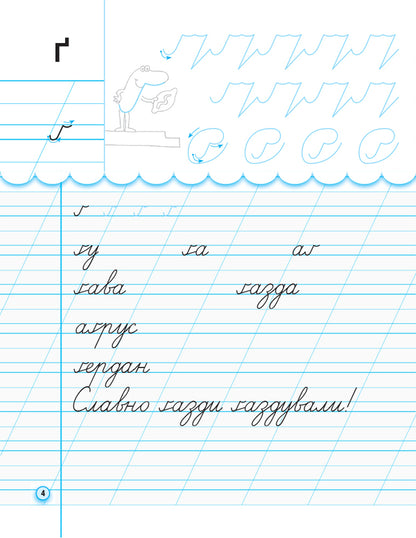 ґ
ґ
ґ
ґу ґа аґ
ґава ґазда
аґрус
ґердан
Славно ґазди ґаздували!
4